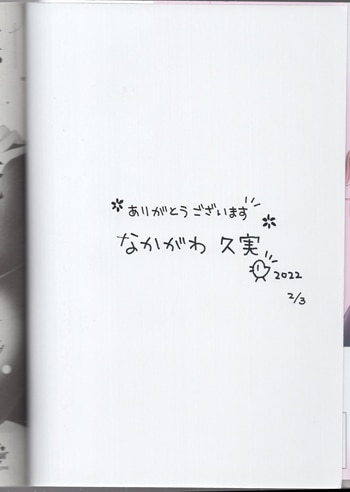 ありがとうございます
なかがわ 久実
2022
2/3